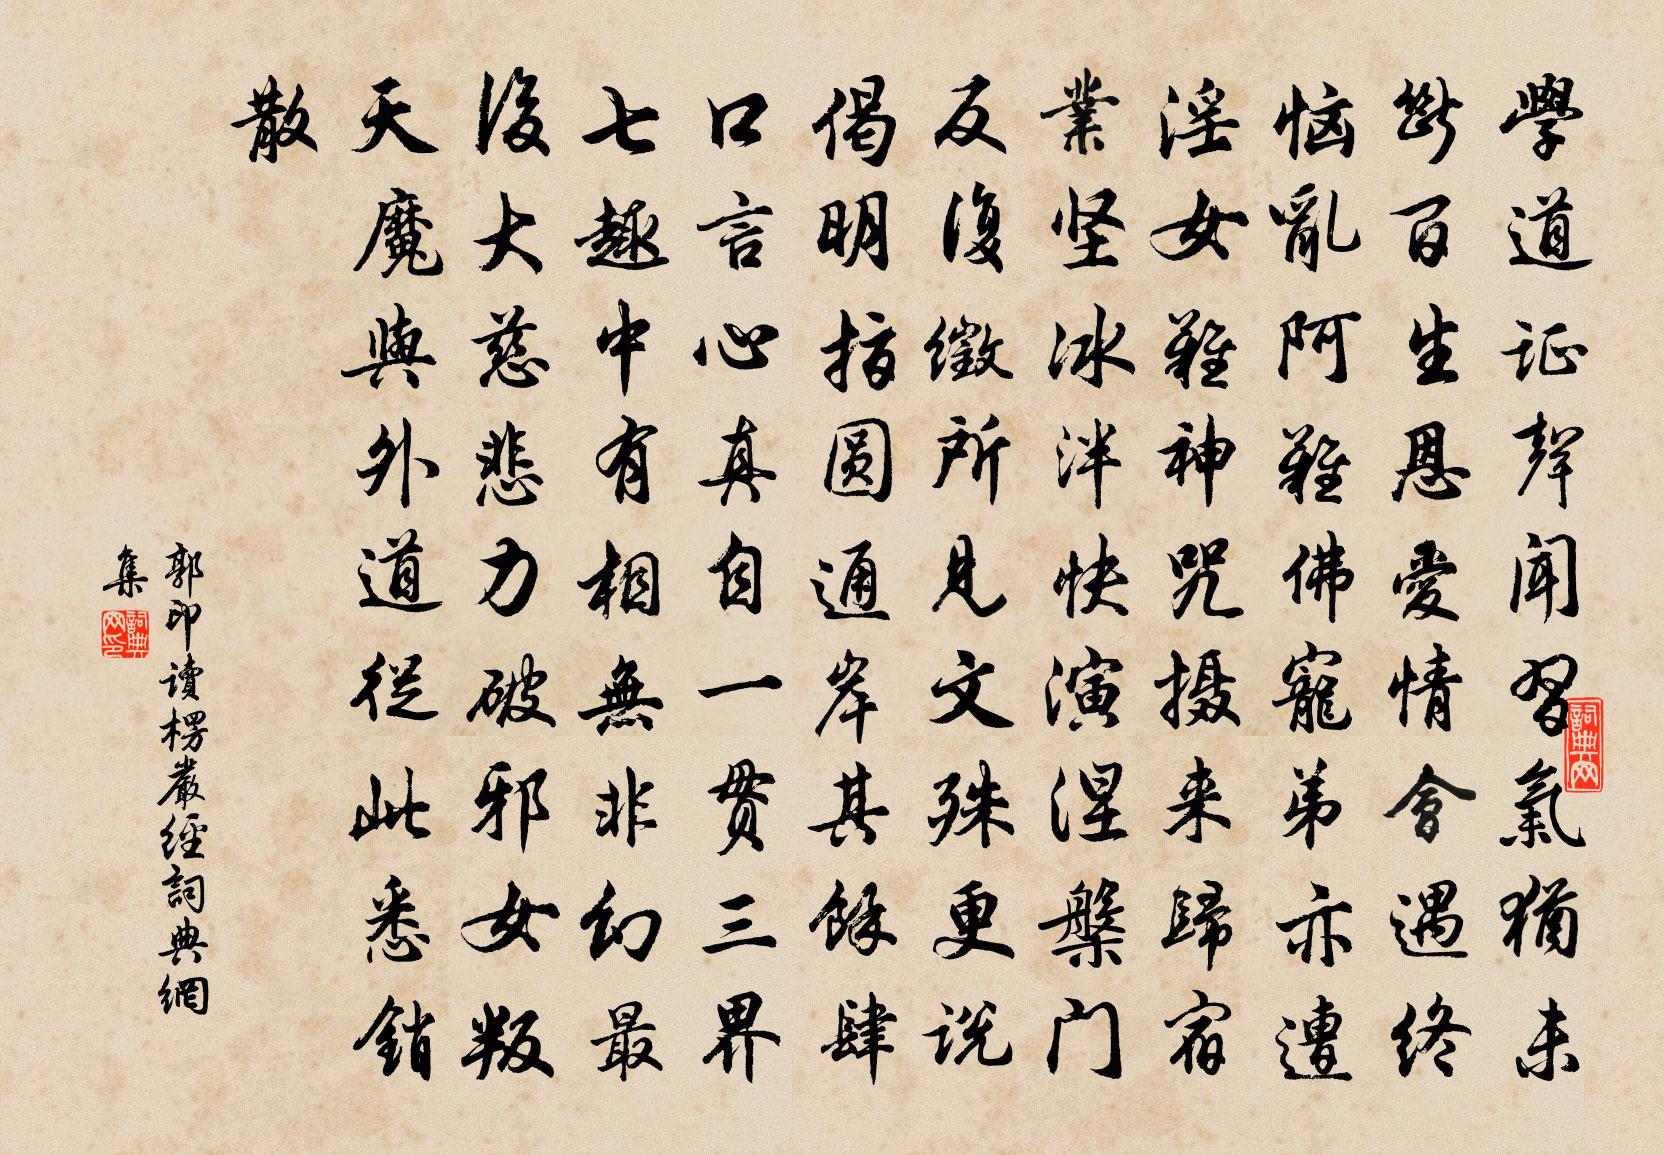 學道证聲聞習氣猶未
斷百生恩愛情會遇終
恼亂阿難佛寵弟亦遭
淫女難神咒摄来歸宿
業坚冰泮快演涅槃门
反復徵所见文殊更说
偈明指圆通岸其餘肆
口言心真自一贯三界
七趣中有相無非幻最
後大慈悲力破邪女叛
天魔與外道從此悉銷
散
郭印讀楞嚴經詞典網
集
詞典网
詞典网印